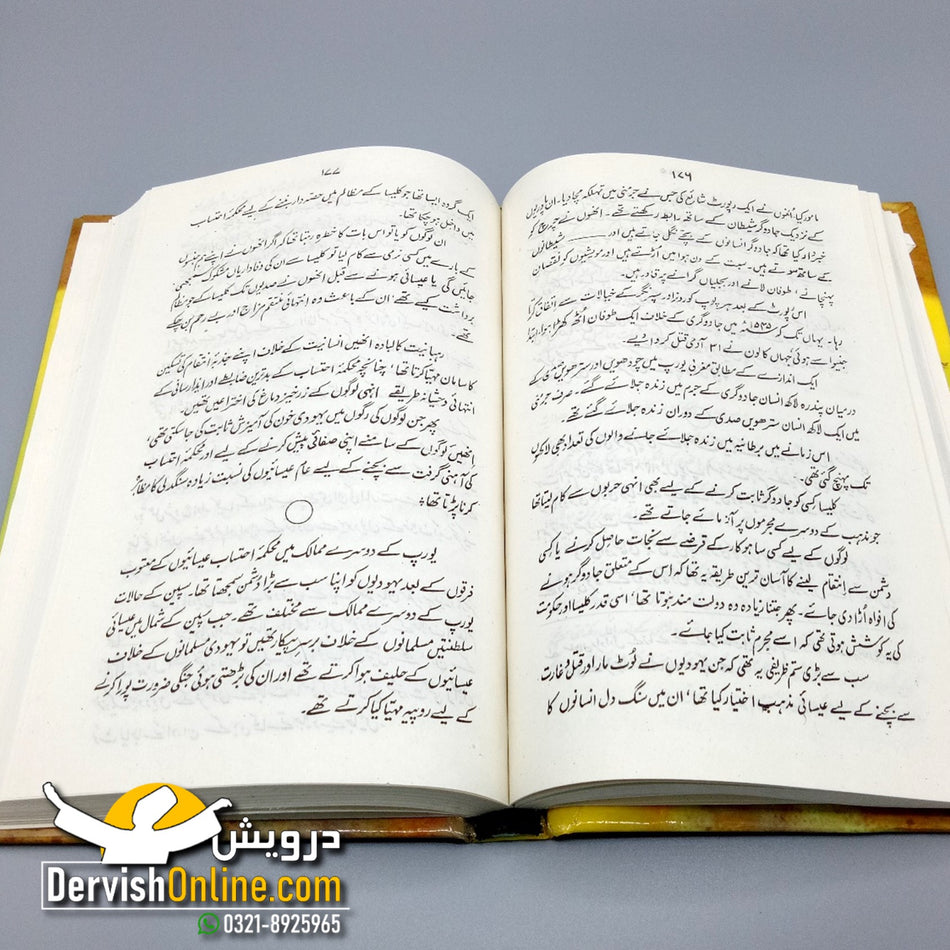 ۱۷۶
مامور کیا انہوں نے ایک رپورٹ شائع کی جس نے جرمنی میں تہلکہ مچا دیا۔ ان پادریوں
کے نزدیک جادوگر شیطان کے ساتھ رابطہ رکھتے تھے۔ انھوں نے چرچ کو
خبردار کیا تھا کہ جادوگر انسانوں کے بچے نگل جاتے ہیں اور ـــــــــ شیطانوں
کے ساتھ سوتے ہیں۔ سبت کے دن ہوا میں اڑتے ہیں اور مویشیوں کو نقصان
پہنچانے، طوفان لانے اور بجلیاں گرانے پر قادر ہیں۔
اس رپورٹ کے بعد ہر پوپ کو روز اور سپرنگر کے خیالات سے اتفاق کرتا
رہا۔ یہاں تک کہ ۱۵۳۵ء میں جادوگری کے خلاف ایک طوفان اُٹھ کھڑا ہوا، ابتدا
جنیوا سے ہوئی جہاں کالون نے ۳۱ آدمی قتل کر دائیے۔
ایک اندازے کے مطابق مغربی یورپ میں چودھویں اور سترھویں صدی کے
درمیان پندرہ لاکھ انسان جادوگری کے جرم میں زندہ جلائے گئے۔ صرف جرمنی
میں ایک لاکھ انسان سترھویں صدی کے دوران زندہ جلائے گئے تھے۔
اس زمانے میں برطانیہ میں زندہ جلائے جانے والوں کی تعداد بھی لاکھوں
تک پہنچ گئی تھی۔
کلیسا کسی کو جادوگر ثابت کرنے کے لیے بھی انہی حربوں سے کام لیتا تھا
جو مذہب کے دوسرے مجرموں پر آزمائے جاتے تھے۔
لوگوں کے لیے کسی ساہوکار کے قرضے سے نجات حاصل کرنے یا کسی
دشمن سے انتقام لینے کا آسان ترین طریقہ یہ تھا کہ اس کے متعلق جادوگر ہونے
کی افواہ اڑا دی جائے۔ پھر جتنا زیادہ وہ دولت مند ہوتا تھا، اسی قدر کلیسا اور حکومت
کی یہ کوشش ہوتی تھی کہ اسے مجرم ثابت کیا جائے۔
سب سے بڑی ستم ظریفی یہ تھی کہ جن یہودیوں نے لُوٹ مار اور قتل و غارت
سے بچنے کے لیے عیسائی مذہب اختیار کیا تھا، ان میں سنگ دل انسانوں کا
۱۷۷
ایک گروہ ایسا تھا جو کلیسا کے مظالم میں حصہ دار بننے کے لیے محکمۂ احتساب
میں داخل ہو چکا تھا۔
ان لوگوں کو یا تو اس بات کا خطرہ رہتا تھا کہ اگر انھوں نے اپنے ہم مذہبوں
کے بارے میں کسی نرمی سے کام لیا تو کلیسا سے ان کی وفاداریاں مشکوک سمجھی
جائیں گی یا عیسائی ہونے سے قبل انھوں نے صدیوں تک کلیسا کے جو مظالم
برداشت کیے تھے، ان کے باعث وہ انتہائی منتقم مزاج اور بے رحم بن چکے
تھے۔
رہبانیت کا لبادہ انھیں انسانیت کے خلاف اپنے جذبۂ انتقام کی تسکین
کا سامان مہیا کرتا تھا، چنانچہ محکمۂ احتساب کے بدترین ضابطے اور ایذا رسانی کے
انتہائی وحشیانہ طریقے انہی لوگوں کے زرخیز دماغ کی اختراعیں تھیں۔
پھر جن لوگوں کی رگوں میں یہودی خون کی آمیزش ثابت کی جاسکتی تھی،
انھیں لوگوں کے سامنے اپنی صفائی پیش کرنے کے لیے اور محکمۂ احتساب
کی آہنی گرفت سے بچنے کے لیے عام عیسائیوں کی نسبت زیادہ سنگدلی کا مظاہرہ
کرنا پڑتا تھا۔
یورپ کے دوسرے ممالک میں محکمۂ احتساب عیسائیوں کے معتوب
فرقوں کے بعد یہودیوں کو اپنا سب سے بڑا دشمن سمجھتا تھا۔ سپین کے حالات
یورپ کے دوسرے ممالک سے مختلف تھے۔ جب سپین کے شمال میں عیسائی
سلطنتیں مسلمانوں کے خلاف برسرِ پیکار تھیں تو یہودی مسلمانوں کے خلاف
عیسائیوں کے حلیف ہوا کرتے تھے اور ان کی بڑھتی ہوئی جنگی ضرورت پورا کرنے
کے لیے روپیہ مہیا کیا کرتے تھے۔
درویش
DervishOnline.com
0321-8925965